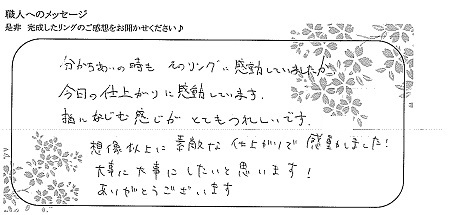 職人へのメッセージ
是非 完成したリングのご感想をお聞かせください♪
分かちあいの時も そのリングに感動していましたが、
今日の仕上がりに感動しています。
指になじむ感じが とてもうれしいです。
想像以上に 素敵な仕上がりで 感動しました!
大事に大事にしたいと思います!
ありがとうございます